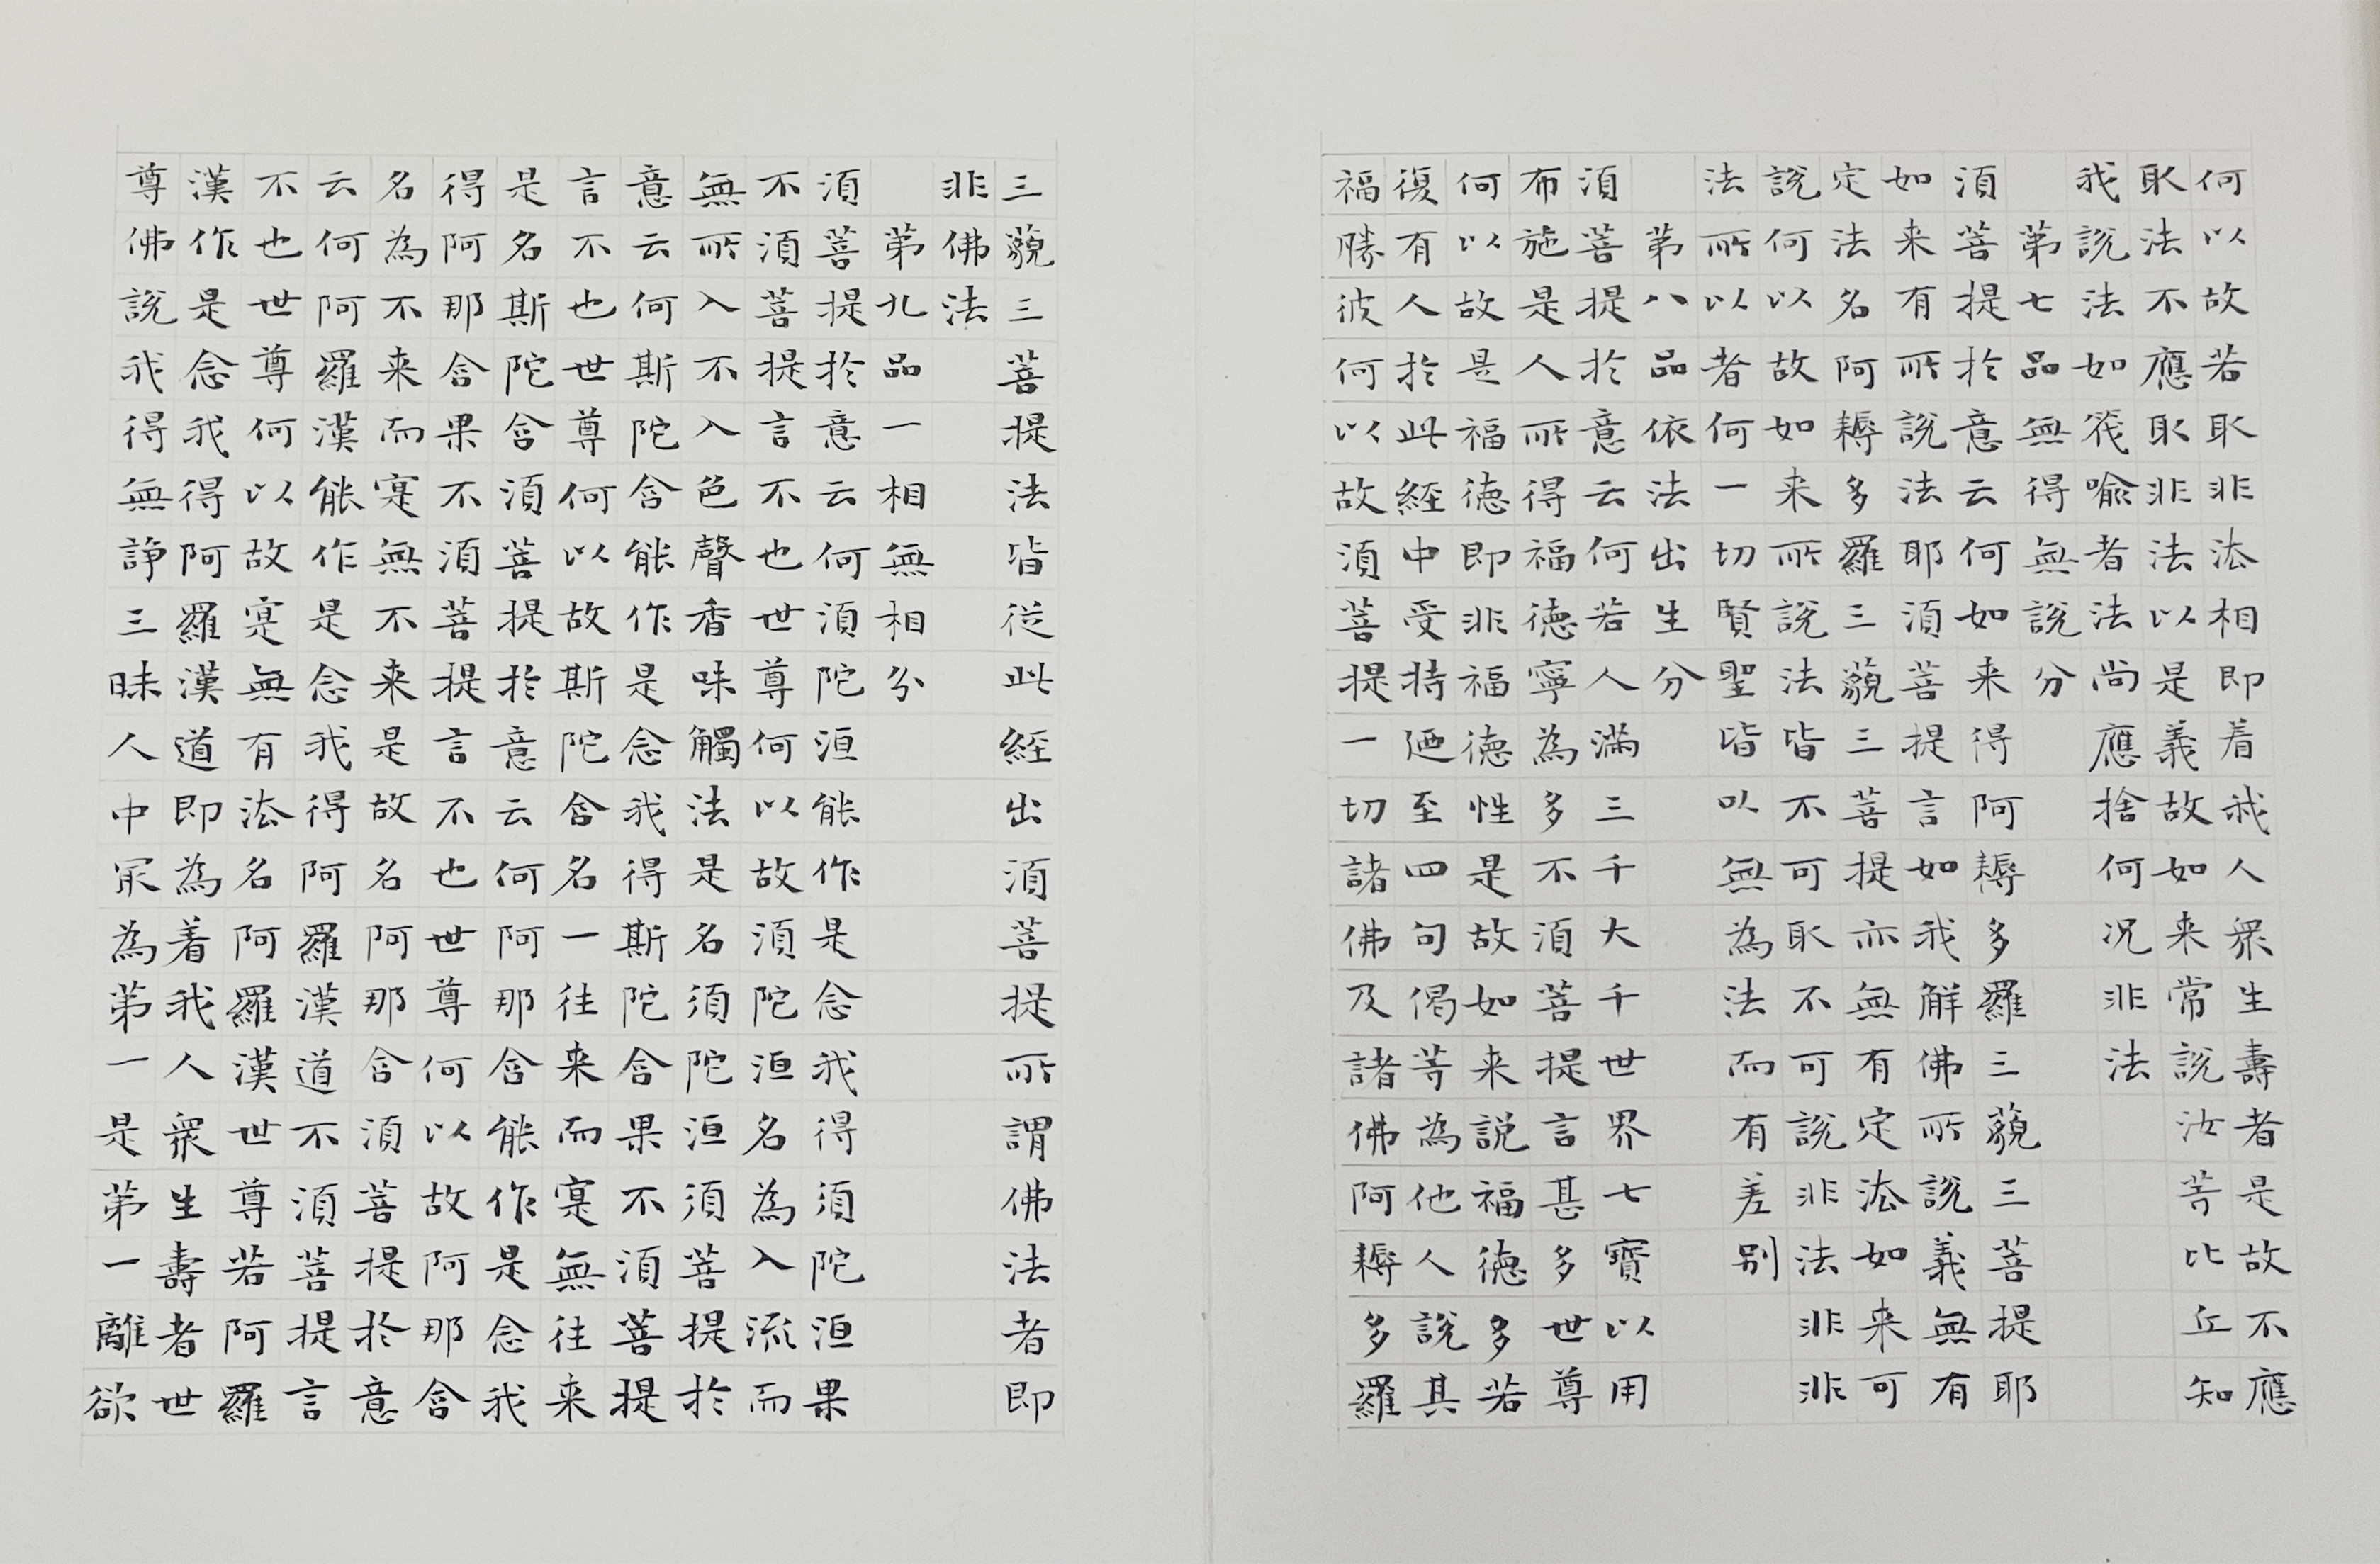 何以故若取非法相即着我人衆生壽者是故不應
取法不應取非法以是義故如来常說汝等比丘知
我說法如筏喻者法尚應捨何况非法
第七品無得無說分
須菩提於意云何如来得阿耨多羅三藐三菩提耶
如来有所說法耶須菩提言如我解佛所說義無有
定法名阿耨多羅三藐三菩提亦無有定法如来可
說何以故如来所說法皆不可取不可說非法非非
法所以者何一切賢聖皆以無為法而有差别
第八品依法出生分
須菩提於意云何若人滿三千大千世界七寶以用
布施是人所得福德寧為多不須菩提言甚多世尊
何以故是福德即非福德性是故如来說福德多若
復有人於此經中受持廼至四句偈等為他人說其
福勝彼何以故須菩提一切諸佛及諸佛阿耨多羅
三藐三菩提法皆從此經出須菩提所謂佛法者即
非佛法
第九品一相無相分
須菩提於意云何須陀洹能作是念我得須陀洹果
不須菩提言不也世尊何以故須陀洹名為入流而
無所入不入色聲香味觸法是名須陀洹須菩提於
意云何斯陀含能作是念我得斯陀含果不須菩提
言不也世尊何以故斯陀含名一往来而寔無往来
是名斯陀含須菩提於意云何阿那含能作是念我
得阿那含果不須菩提言不也世尊何以故阿那含
名為不来而寔無不来是故名阿那含須菩提於意
云何阿羅漢能作是念我得阿羅漢道不須菩提言
不也世尊何以故寔無有法名阿羅漢世尊若阿羅
漢作是念我得阿羅漢道即為着我人衆生壽者世
尊佛說我得無諍三昧人中冣為第一是第一離欲